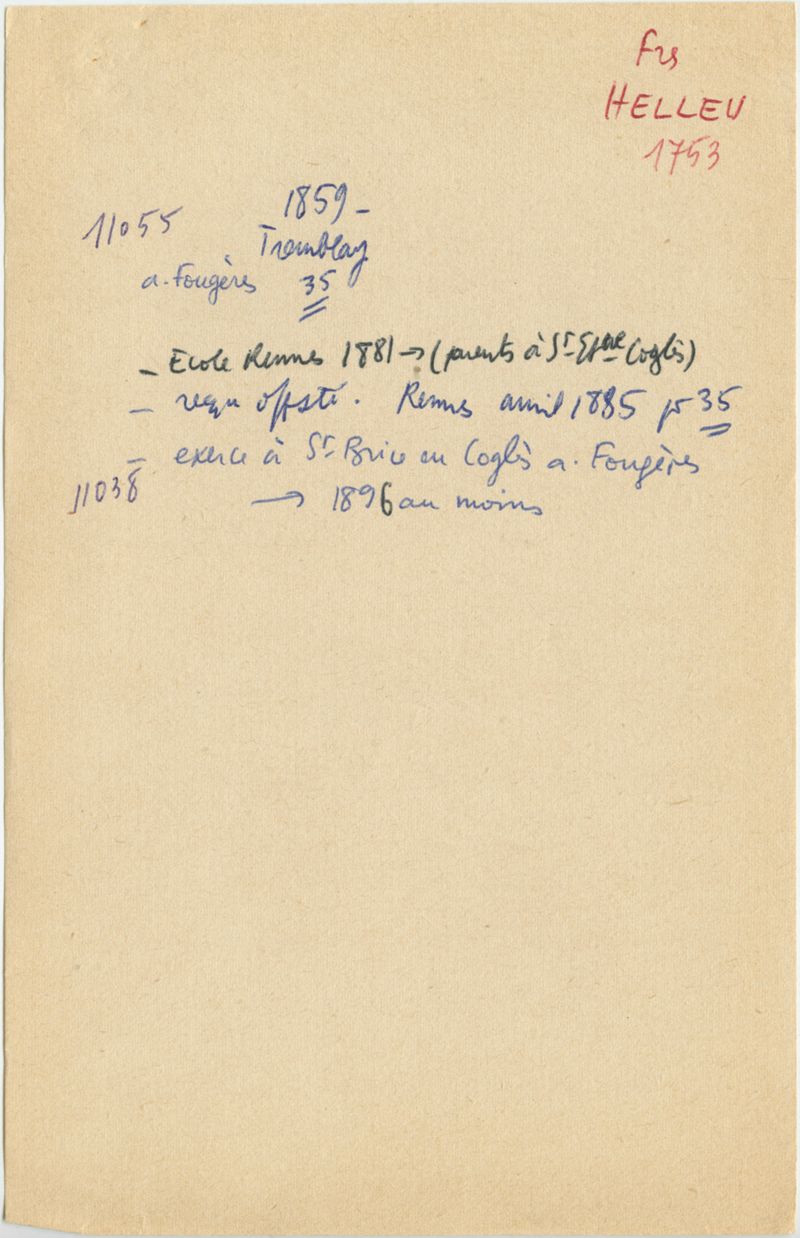 Frs
HELLEU
1753
1859 -
11055
Tremblay
a. Fougères 35
- Ecole Rennes 1881 → (parents à St-Etne Coglès)
- reçu offsté. Rennes avril 1885 pr 35
- exerce à St-Brice en Coglès a. Fougères
11038
→ 1896 au moins